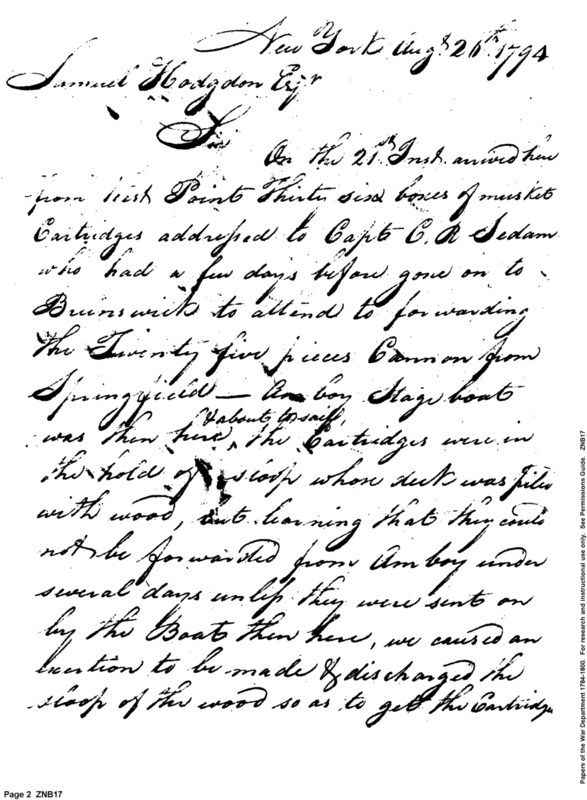 New York Augt 26th 1794
Samuel Hodgdon Esqr
Sir
On the 21st Inst. arrived here
from West Point Thirty six boxes of musket
Cartridges addressed to Capt C. R Sedam
who had a few days before gone on to
Brunswick to attend to forwarding
the Twenty five pieces Cannon from
Springfield — Amboy Stage boat
& about to sail,
was then here, the Cartridges were in
the hold of sloop whose deck was filed
with wood, but learning that they could
not be forwarded from Amboy under
several days unless they were sent on
by the Boat then here, we caused an
exertion to be made & discharged the
sloop of the wood so as to get the Cartridges
Page 2 ZNB17
Papers of the War Department 1784-1800. For research and instructional use only. See Permissions Guide. ZNB17